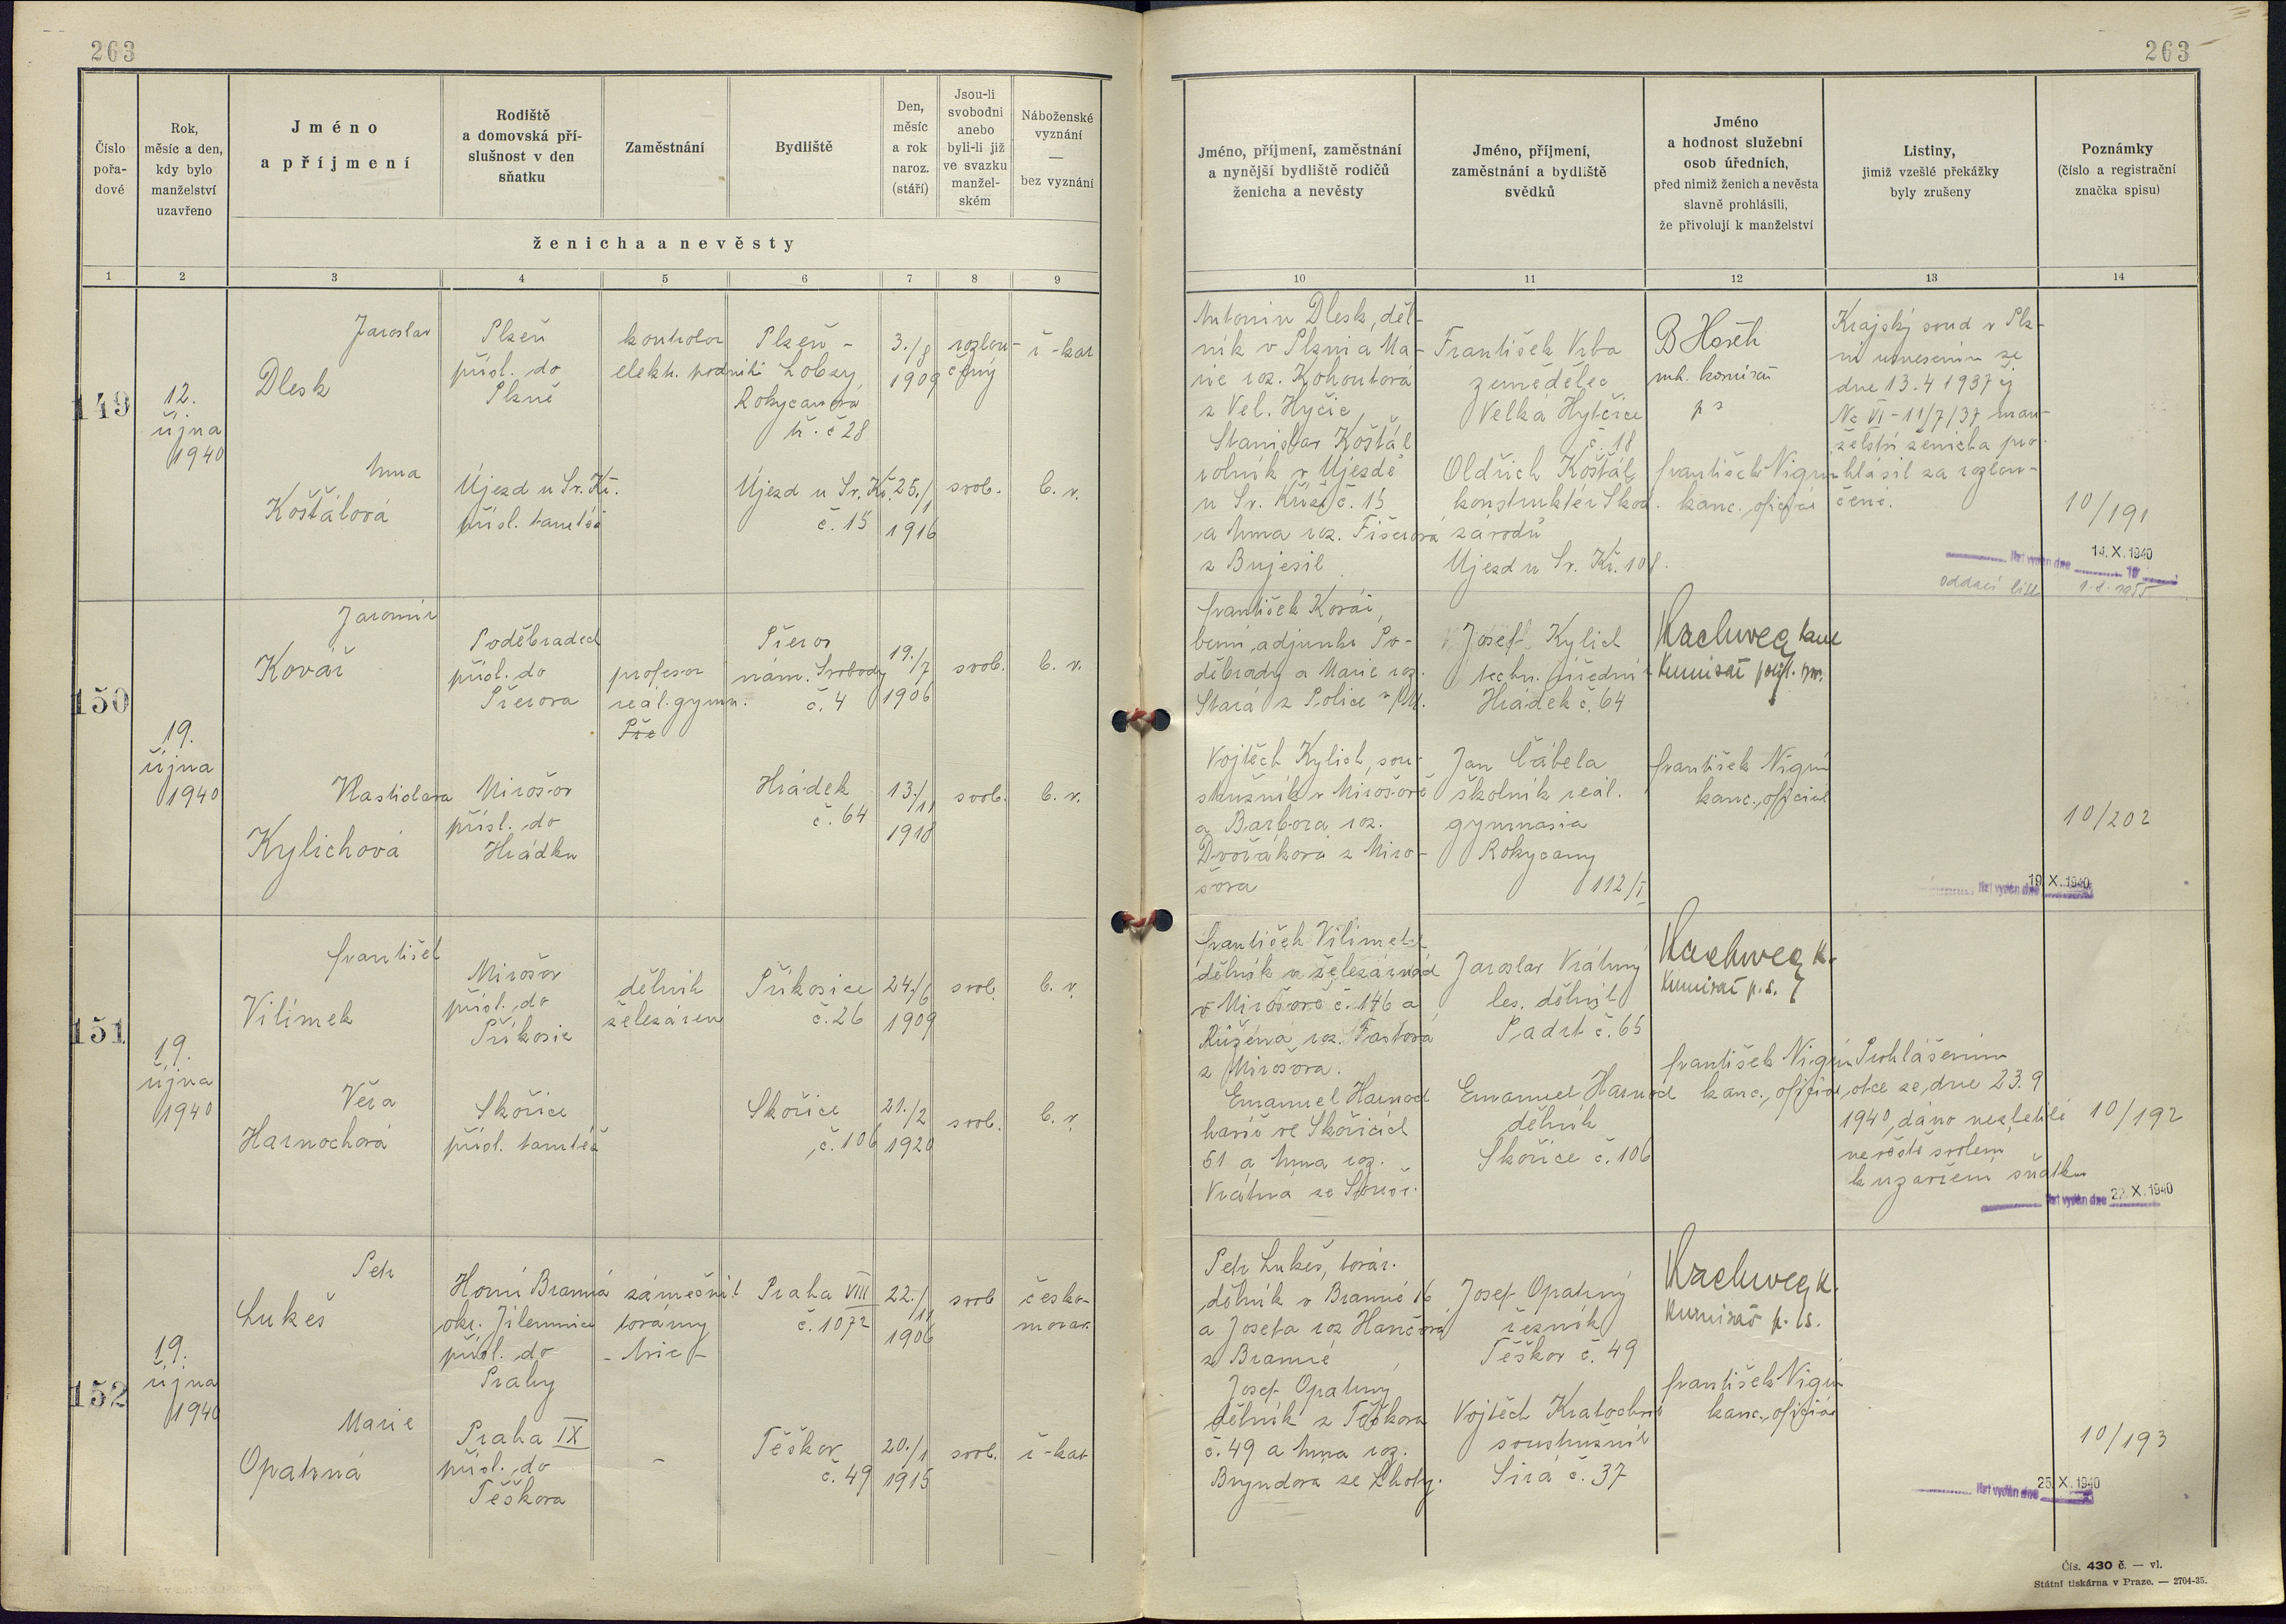 263
263
Číslo pořa-dové
Rok, měsíc a den, kdy bylo manželství uzavřeno
Jméno a příjmení
Rodiště a domovská pří-slušnost v den sňatku
Zaměstnání
Bydliště
Den, měsíc a rok naroz. (stáří)
Jsou-li svobodni anebo byli-li již ve svazku manžel-ském
Náboženské vyznání — bez vyznání
ženicha a nevěsty
Jméno, příjmení, zaměstnání a nynější bydliště rodičů ženicha a nevěsty
Jméno, příjmení, zaměstnání a bydliště svědků
Jméno a hodnost služební osob úředních, před nimiž ženich a nevěsta slavně prohlásili, že přivolují k manželství
Listiny, jimiž vzešlé překážky byly zrušeny
Poznámky (číslo a registrační značka spisu)
1 2 3 4 5 6 7 8 9 10 11 12 13 14
149
12.
října
1940
Jaroslav
Dlesk
Plzeň
přísl. do
Plzně
kontrolor
elektr. podniků
Plzeň -
Lobzy
Rokycanova
tř. č 28
3./8
1909
rozlou-
čený
ř-kat
Anna
Košťálová
Újezd u Sv. Kř.
přísl. tamtéž
Újezd u Sv. Kř.
č. 15
25./1
1916
svob.
b. v.
Antonín Dlesk, děl-
ník v Plzni a Ma-
rie roz. Kohoutová
z Vel. Hyčic,
Stanislav Košťál
rolník v Újezdě
u Sv. Kříže č. 15
a Anna roz. Fišerová
z Bujesil
František Vrba
zemědělec
Velká Hytčice
č. 18
Oldřich Košťál
konstruktér Škod.
závodů
Ujezd u Sv. Kř. 108.
františek Nigrin
kanc. oficiál
Krajský soud v Plz-
ni usnesením ze
dne 13.4 1937 čj
Nc VI-11/7/37 man-
želství ženicha pro-
hlásil za rozlou-
čené.
10/191
14. X. 1940
list vydán dne
oddací list
150
19.
října
1940
Jaromír
Kovář
Poděbradech
přísl. do
Přerova
profesor
reál. gymn.
Pře
Přerov
nám. Svobody
č. 4
19./7
1906
svob.
b. v.
Vlastislava
Kylichová
Mirošov
přísl. do
Hrádku
Hrádek
č. 64
13./11
1918
svob.
b. v.
františek Kovář,
berní adjunkt Po-
děbrady a Marie roz.
Stará z Police n/M.
Josef Kylich
techn. úředník
Hrádek č. 64
Vojtěch Kylich, sou-
stružník v Mirošově
a Barbora roz.
Dvořáková z Miro-
šova
Jan Čábela
školník reál.
gymnasia
Rokycany
112/I
františek Nigrin
kanc. oficiál
10/202
19. X. 1940
list vydán dne
151
19.
října
1940
františek
Vilímek
Mirošov
přísl. do
Příkosic
dělník
železáren
Příkosice
č. 26
24./6
1909
svob.
b. v.
Věra
Harnochová
Skořice
přísl. tamtéž
Skořice
č. 106
21./2
1920
svob.
b. v.
františek Vilímek
dělník v železárnách
v Mirošově č. 146 a
Růžena roz. Fastová
z Mirošova.
Jaroslav Vrátný
les. dělník
Padrt č. 65
Emanuel Harnoch
havíř ve Skořicích
51 a Anna roz.
Vrátná ze Skořic.
Emanuel Harnoch
dělník
Skořice č. 106
františek Nigrin
kanc. oficiál
Prohlášením
otce ze dne 23.9
1940, dáno nezletilé
nevěstě svolení
k uzavření sňatku
10/192
22. X. 1940
list vydán dne
152
19.
října
1940
Petr
Lukeš
Horní Branná
okr. Jilemnice
přísl. do
Prahy
zámečník
továrny
Praha VIII
č. 1072
22./11
1906
svob
česko-
morav.
Marie
Opatrná
Praha IX
přísl. do
Těškova
-
Těškov
č. 49
20./1
1915
svob.
ř-kat
Petr Lukeš, továr.
dělník v Branné 16
a Josefa roz Hančová
z Branné
Josef Opatrný
řezník
Těškov č. 49
Josef Opatrný
dělník z Těškova
č. 49 a Anna roz.
Bryndová ze Lhoty.
Vojtěch Kratochvíl
soustružník
Sirá č. 37
františek Nigrin
kanc. oficiál
10/193
25. X. 1940
list vydán dne
Čís. 430 č. — vl.
Státní tiskárna v Praze. — 2704-35.